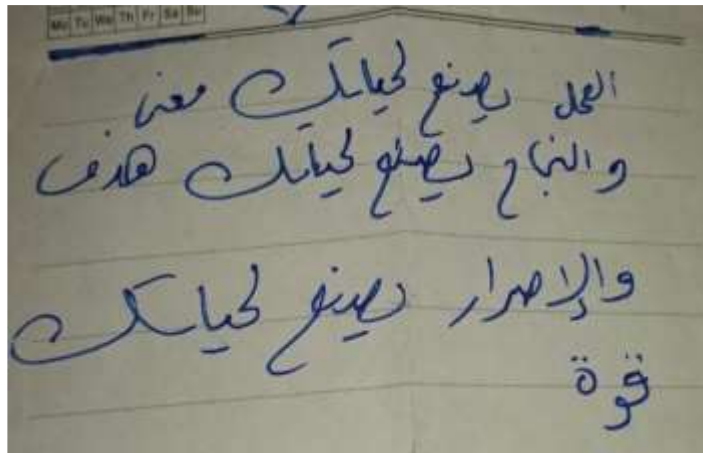 Mo Tu We Th Fr Sa Su
العمل يصنع لحياتك معنى
والنجاح يصنع لحياتك هدف
والإصرار يصنع لحياتك
قوة